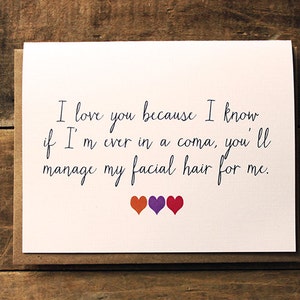 I love you because I know
if I'm ever in a coma, you'll
manage my facial hair for me.